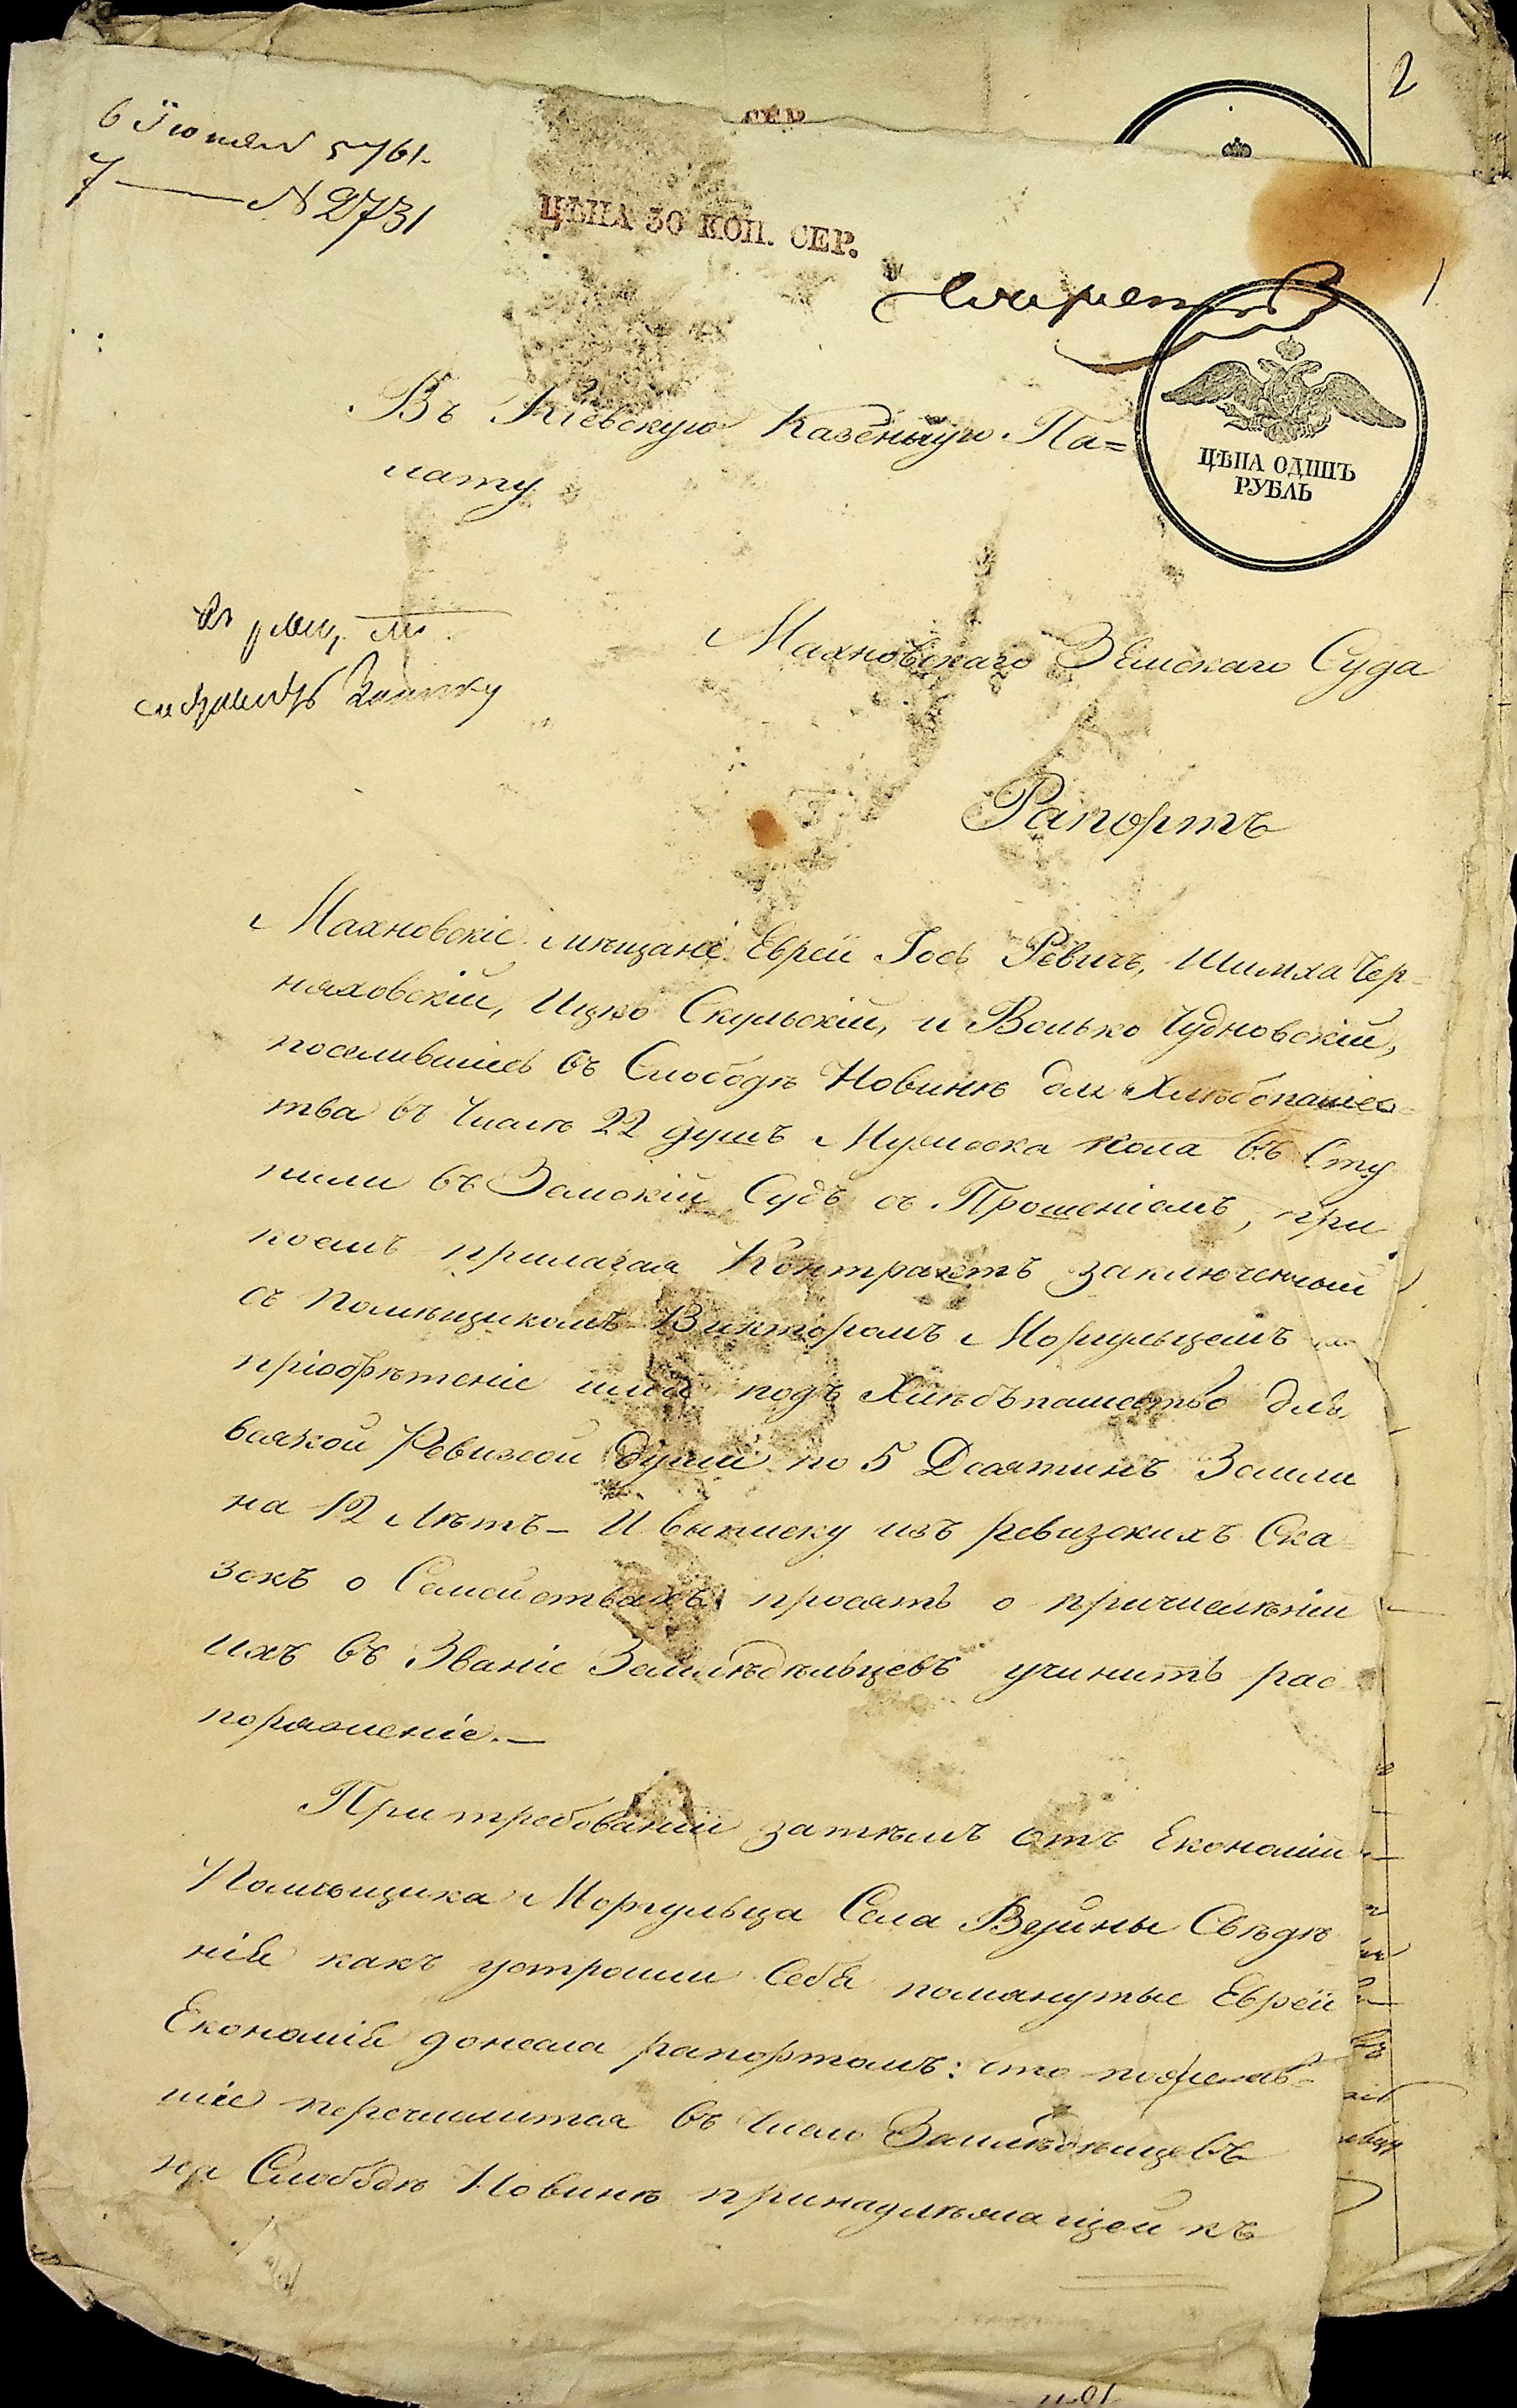 2
6 Іюня 5761.
7 — N 2731
СЕР.
ЦѢНА 30 КОП. СЕР.
1
ЦѢНА ОДИНЪ
РУБЛЬ
Въ Кіевскую Казеную Па=
лату
Махновскаго Земскаго Суда
Рапортъ
Махновскіе мѣщане Евреи Іось Ревичъ, Шимха Чер-
няховскій, Ицко Скульскій, и Волько Чудновскій,
поселившіесь въ Слободѣ Новинѣ для Хлѣбопашес-
тва въ Числѣ 22 душъ Мужеска пола въ Сту
пили въ Земскій Судъ съ Прошеніемъ, при
коемъ прилагая Контрактъ заключенный
съ Помѣщикомъ Викторомъ Моргульцемъ на
пріобрѣтеніе ими подъ Хлѣбъпашество для
всякой Ревизкой Души по 5 Десятинъ Земли
на 12 Лѣтъ— И выписку изъ ревизскихъ Ска
зокъ о Семействахъ просятъ о причисленіи
ихъ въ Званіе Земледѣльцевъ учинить рас
поряженіе.—
При требованіи затѣмъ отъ Економіи
Помѣщика Моргульца Села Вуйны Свѣдѣ
ній какъ устроили Себя помянутые Евреи
Економія донесла рапортомъ: что пожелав-
шіе перечислится въ Число Земледѣльцевъ
на Слободѣ Новинѣ принадлежащей къ